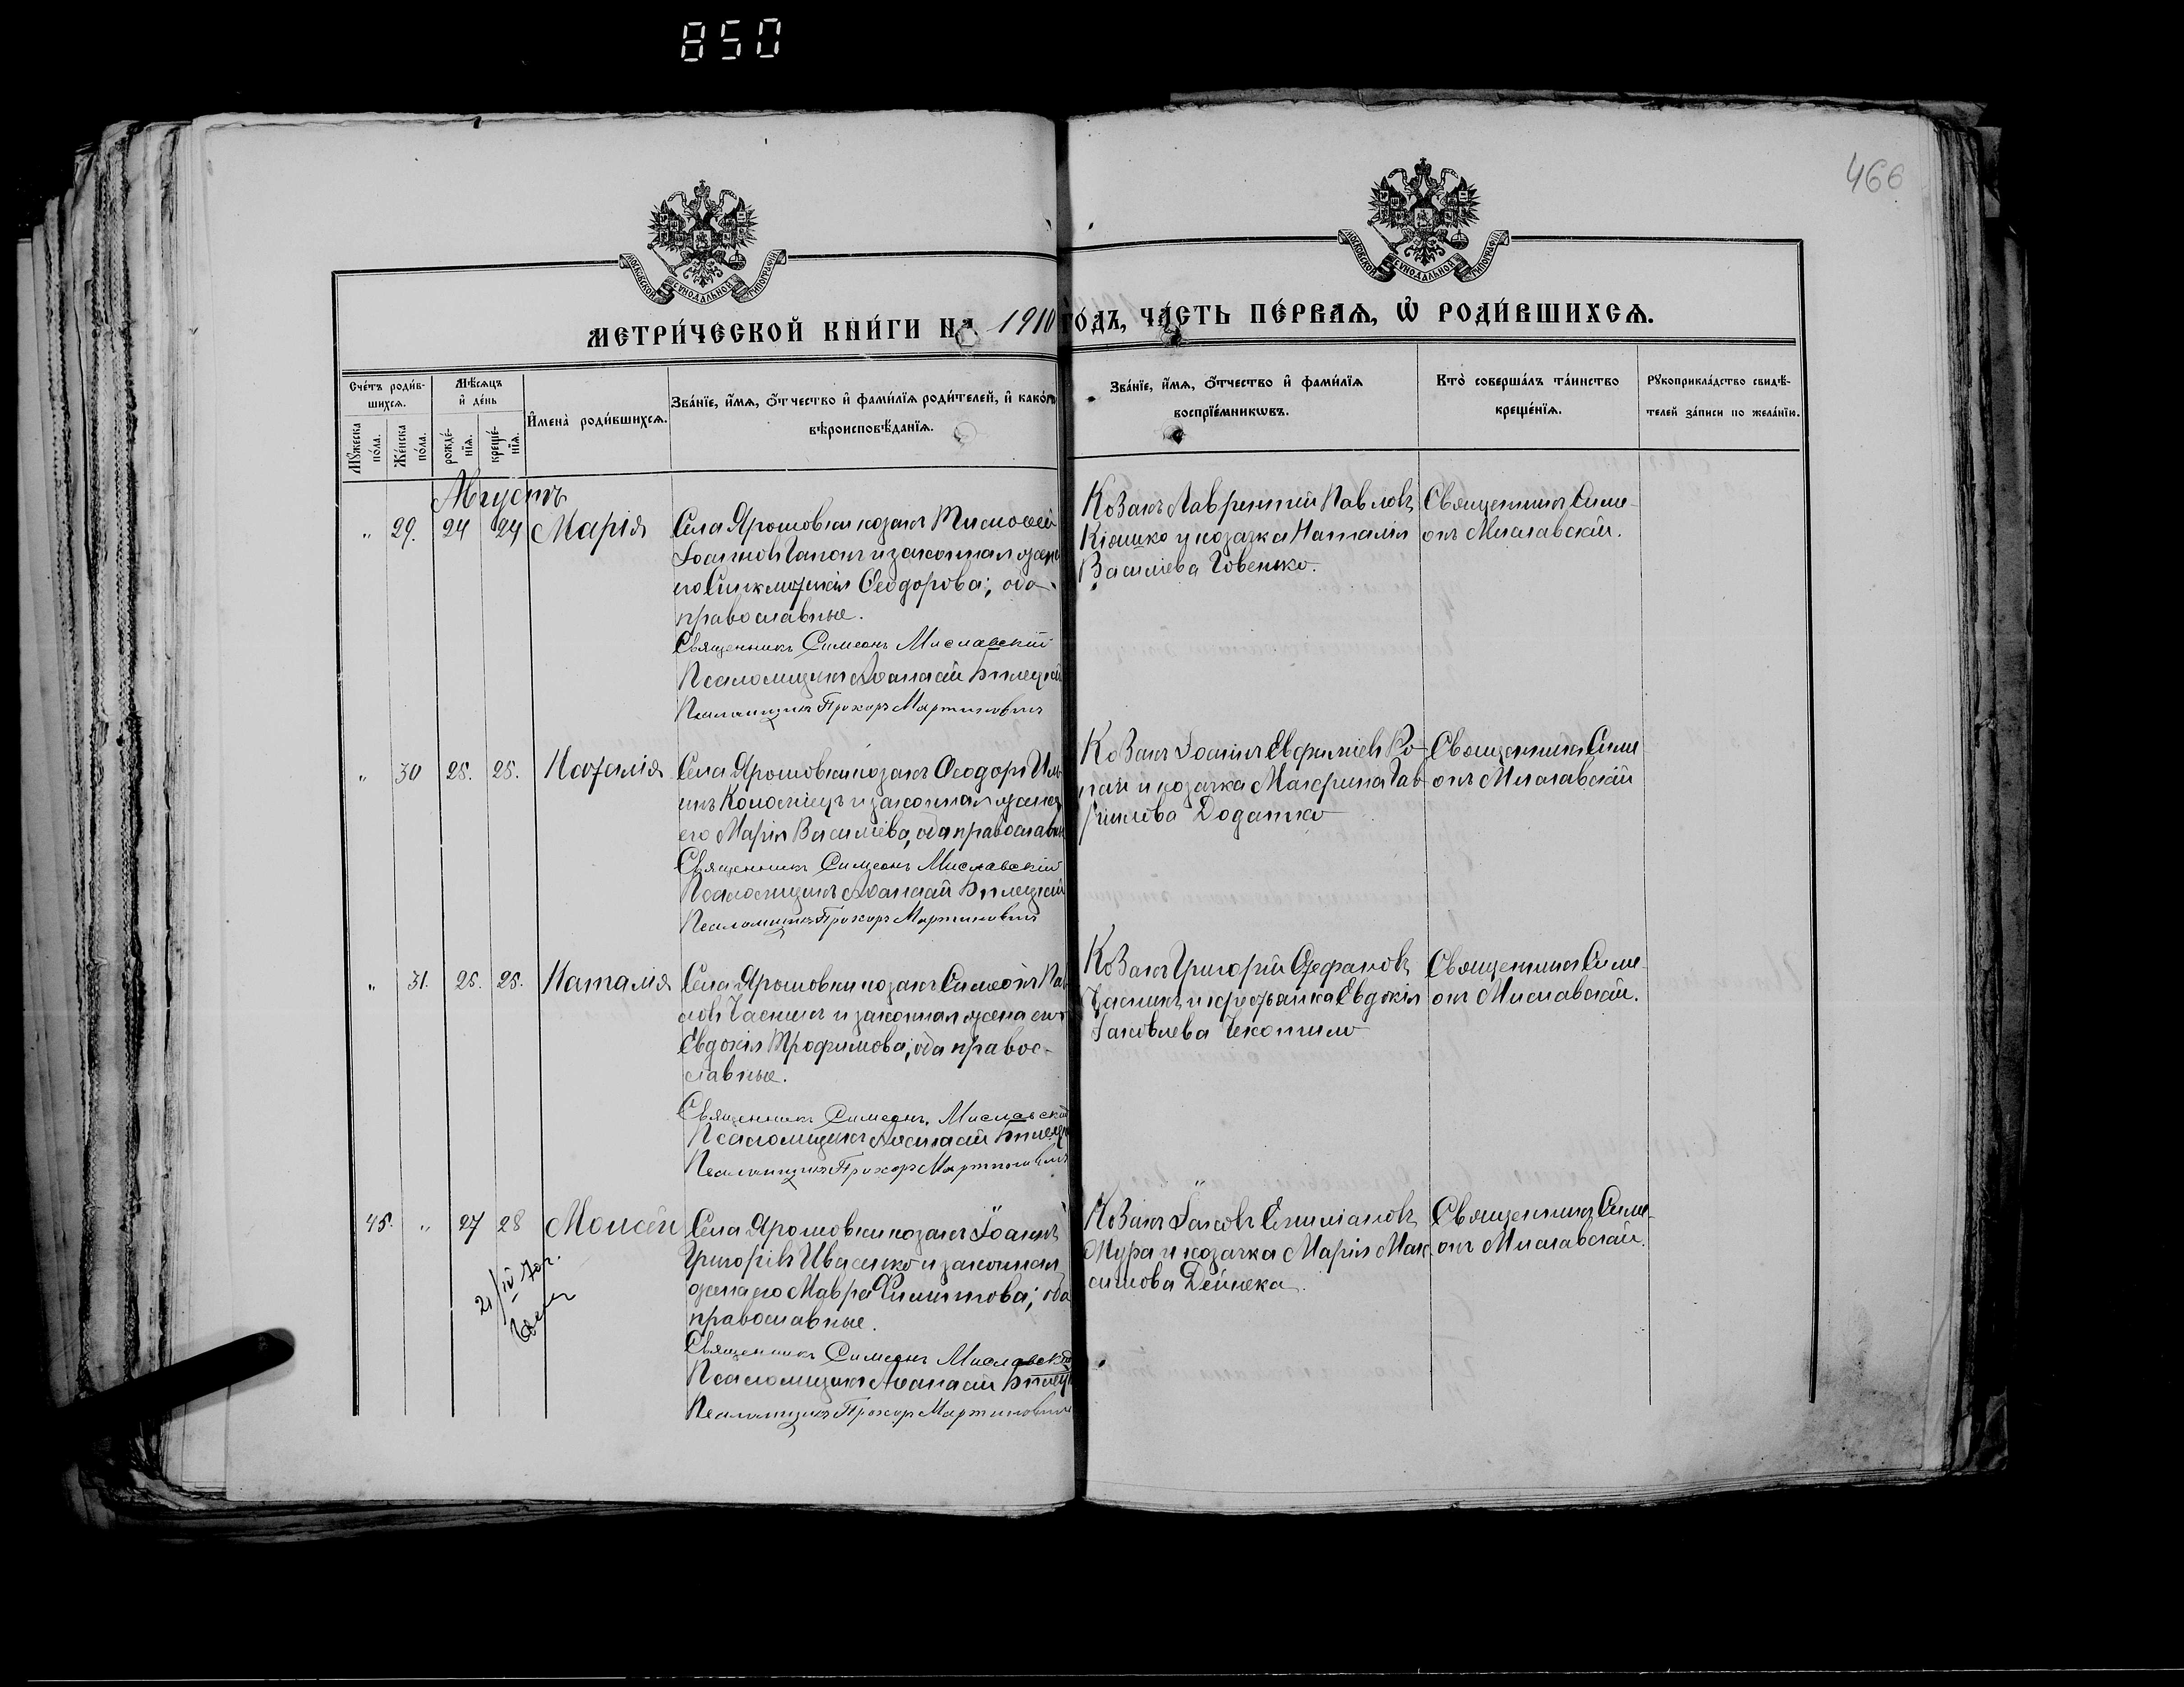 850
466
МОСКОВСКОЙ СѴНОДАЛЬНОЙ ТИПОГРАФІИ
МОСКОВСКОЙ СѴНОДАЛЬНОЙ ТИПОГРАФІИ
МЕТРИ́ЧЕСКОЙ КНИ́ГИ НА 1910 ГО́ДЪ, ЧА́СТЬ ПЕ́РВАѦ, Ѽ РОДИ́ВШИХСѦ.
Сче́тъ роди́в-
шихсѧ.
Мꙋ́жеска по́ла.
Же́нска по́ла.
Мѣ́сѧцъ и҆ де́нь
рожде́-
нїѧ.
креще́-
нїѧ.
И҆мена̀ роди́вшихсѧ.
Зва́нїе, и҆́мѧ, ѻ҆́тчество и҆ фами́лїѧ роди́телей, и҆ како́гѡ
вѣроисповѣ́данїѧ.
Зва́нїе, и҆́мѧ, ѻ҆́тчество и҆ фами́лїѧ
воспрїе́мникѡвъ.
Кто̀ соверша́лъ та́инство
креще́нїѧ.
Рꙋкоприкла́дство свидѣ́-
телей за́писи по жела́нїю.
Августъ
" 29. 24 24 Марія
Села Ярошовки козакъ Тимоѳей
Іоанновъ Гапонъ и законная жена
его Синклитикія Ѳеодорова; оба
православные.
Священникъ Симеонъ Миславскій
Псаломщикъ Аѳанасій Бѣлецкій
Псаломщикъ Прохоръ Мартиновичъ
Козакъ Лаврентій Павловъ
Кіяшко и козачка Наталія
Василіева Говенько.
Священникъ Симе-
онъ Миславскій.
" 30 25. 25. Наталія
Села Ярошовки козакъ Ѳеодоръ Иль-
инъ Коломіецъ и законная жена
его Марія Василіева, оба православные
Священникъ Симеонъ Миславскій
Псаломщикъ Аѳанасій Бѣлецкій
Псаломщикъ Прохоръ Мартиновичъ
Козакъ Іоаннъ Евфиміевъ Ро-
пай и козачка Макрина Гав-
риилова Додатко
Священникъ Симе
онъ Миславскій
" 31. 25. 25. Наталія
Села Ярошовки козакъ Симеонъ Пав
ловъ Часникъ и законная жена его
Евдокія Трофимова; оба правос-
лавные.
Священникъ Симеонъ Миславскій
Псаломщикъ Аѳанасій Бѣлецк
Псаломщикъ Прохоръ Мартиновичъ
Козакъ Григорій Стефановъ
Часникъ и крестьянка Евдокія
Іаковлева Чекотило
Священникъ Симе-
онъ Миславскій.
45. " 27 28 Моисей
21/IV 70г.
Села Ярошовки козакъ Іоаннъ
Григорьевъ Ивасенко и законная
жена его Мавра Филиппова; оба
православные.
Священникъ Симеонъ Миславскій
Псаломщикъ Аѳанасій Бѣлецк
Псаломщикъ Прохоръ Мартиновичъ
Козакъ Іаковъ Емиліановъ
Мура и козачка Марія Мак-
симова Дейнека.
Священникъ Симе-
онъ Миславскій.